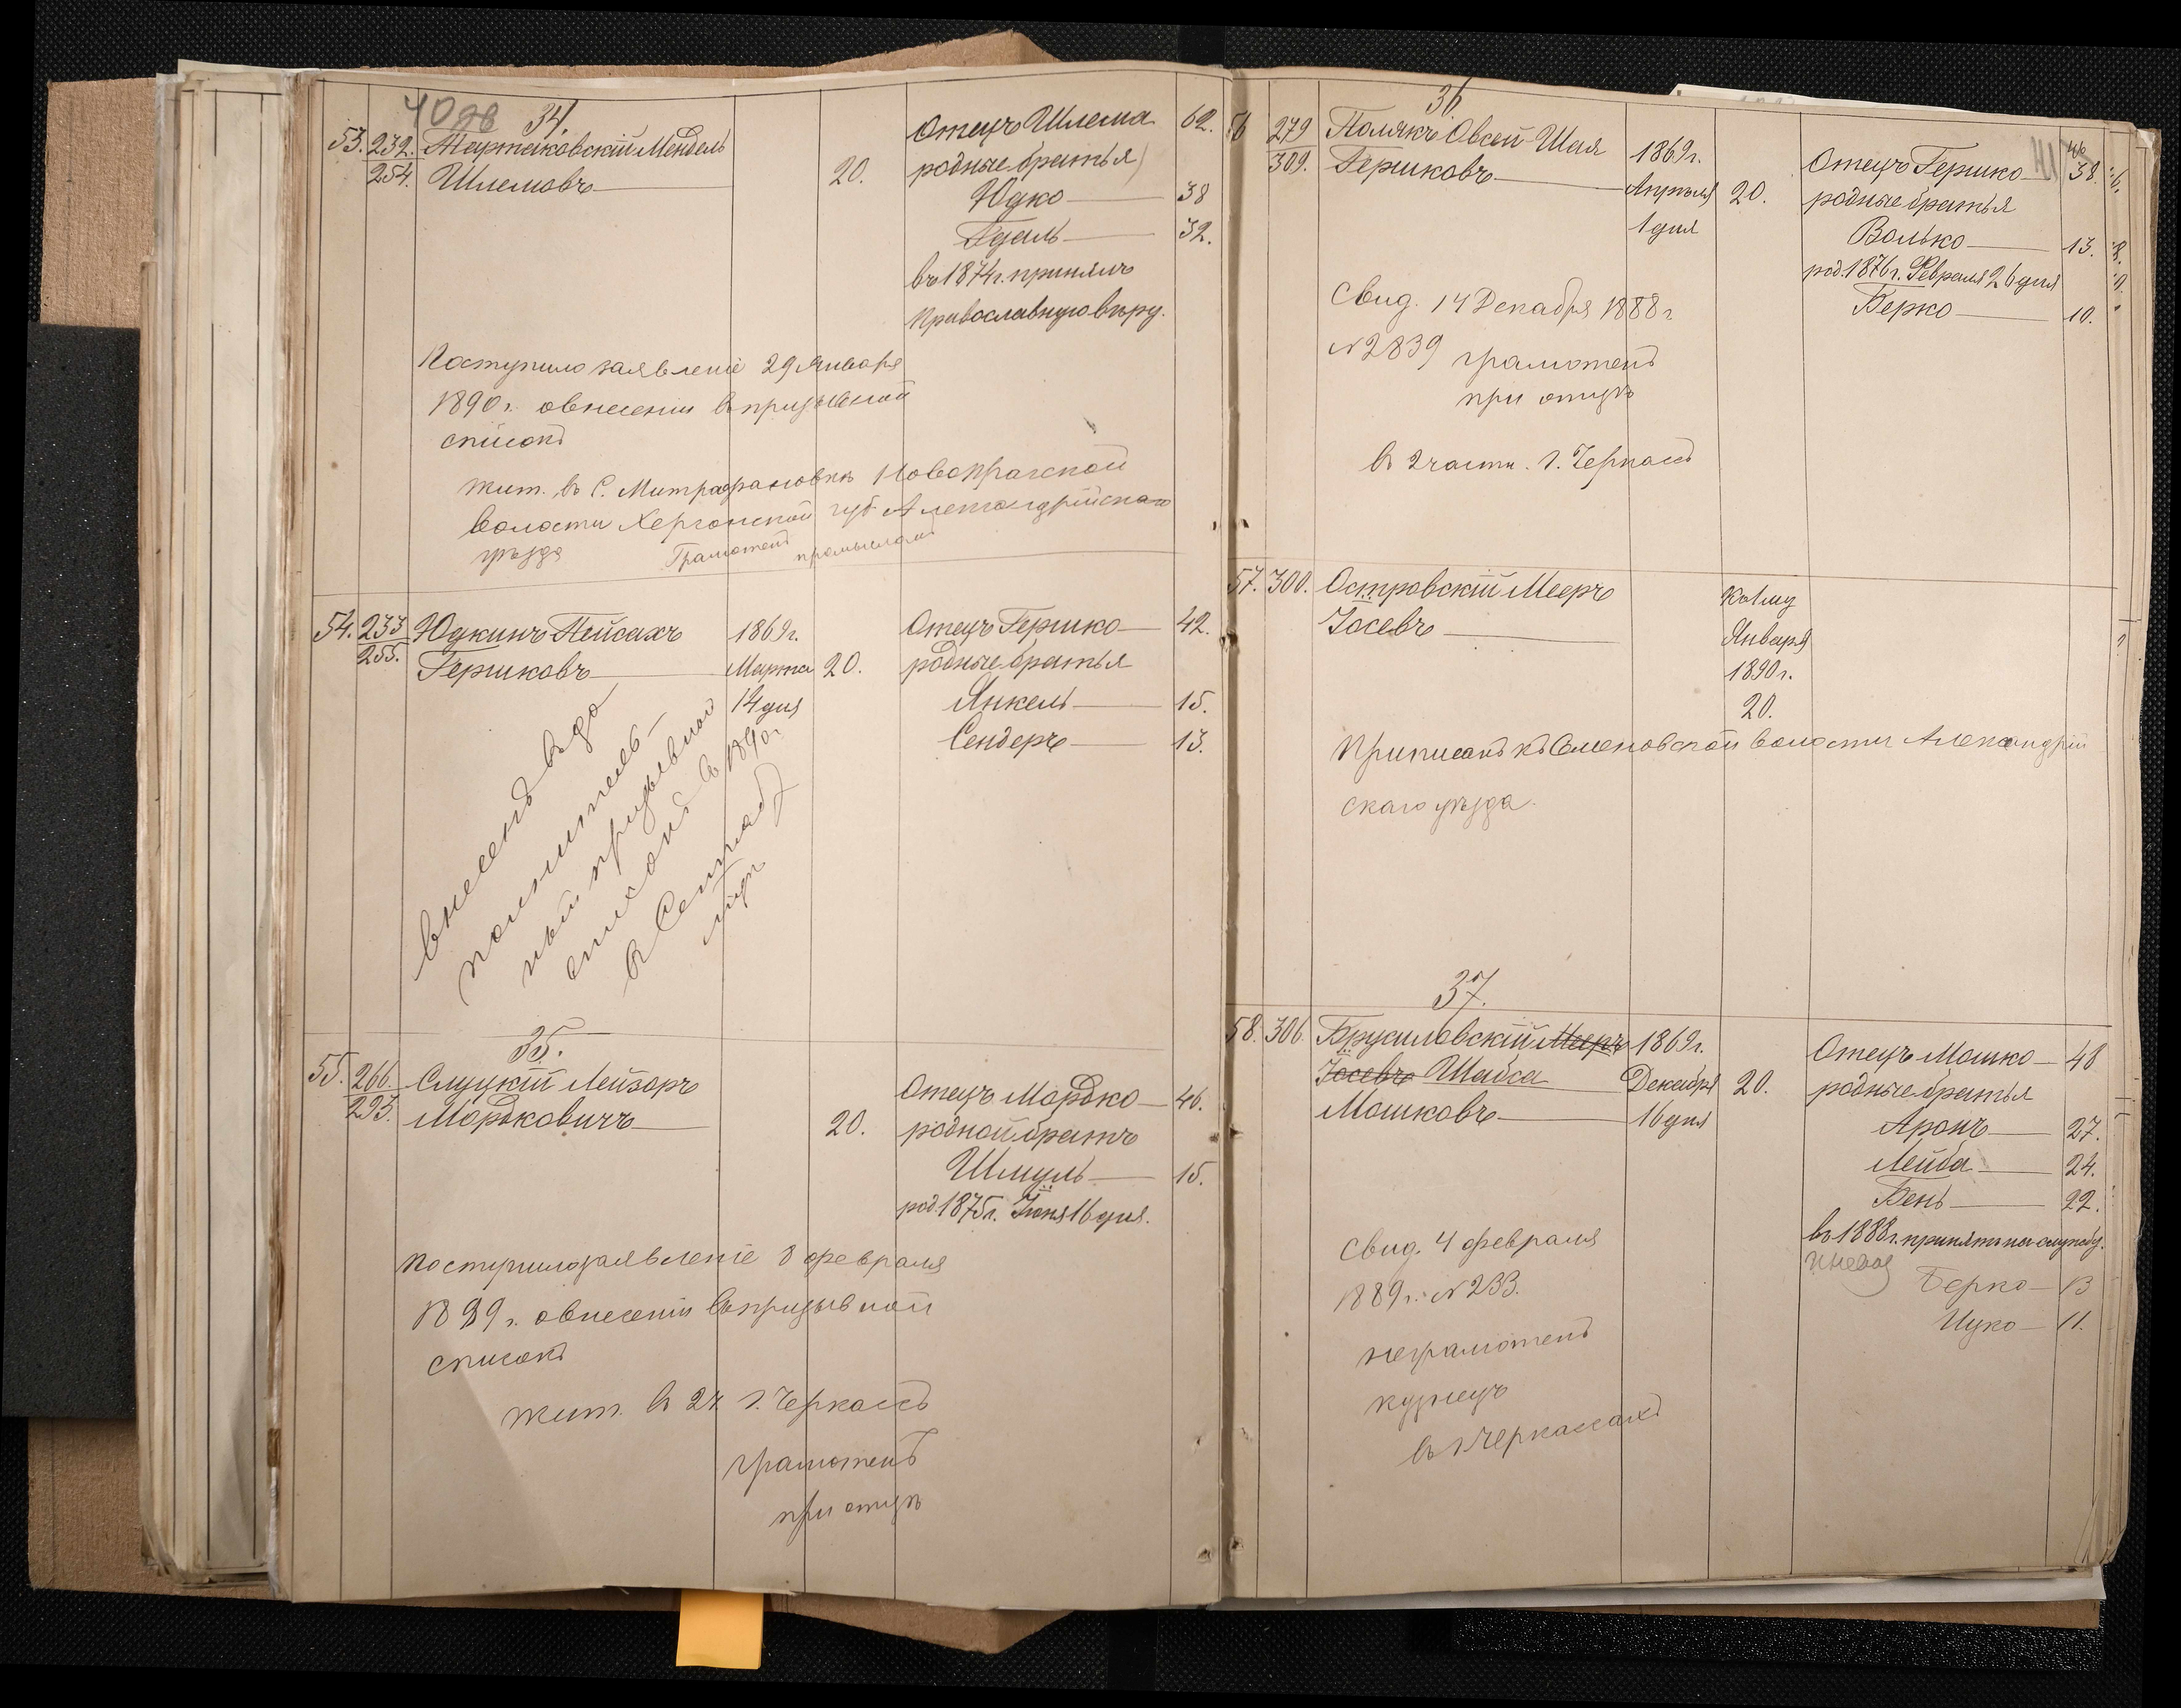 40об
34.
53. 232. Тартаковскій Мендель
254. Шлемовъ 20.
Отецъ Шлема 62.
родные братья
Юдко 38
Гдаль 32.
въ 1874 г. принялъ
Православную вѣру.
Поступило заявленіе 29 Января
1890 г. о внесеніи въ призывной
списокъ
жит. въ С. Митрофановкѣ Новопражской
волости Херсонской губ Александрійскаго
уѣзда Грамотенъ
54. 233 Юдкинъ Пейсахъ 1869 г.
255. Гершковъ Марта 20.
14 дня
Отецъ Гершко 42.
родные братья
Янкель 15.
Сендеръ 13.
внесенъ въ до
полнитель-
ный призывной
списокъ въ 1890 г
35.
55. 266. Слуцкій Лейзоръ
293. Мордковичъ 20.
Отецъ Мордко 46.
родной братъ
Шмуль 15.
род. 1875 г. Іюня 16 дня.
Поступило заявленіе 8 февраля
1889 г. о внесеніи въ призывной
списокъ
жит. въ 2 ч г. Черкассъ
грамотенъ
при отцѣ
36.
41
56 279 Полякъ Овсей-Шая 1869 г.
309. Гершковъ Апрѣля 20.
1 дня
Отецъ Гершко 38.
46
родные братья
Волько 13.
род. 1876 г. Февраля 26 дня
Берко 10.
Свид. 14 Декабря 1888 г
№ 2839 грамотенъ
при отцѣ
въ 2 части г. Черкассъ
57. 300. Островскій Мееръ
Іосевъ
къ 1му
Января
1890 г.
20.
Приписанъ къ Семеновской волости Александрій
скаго уѣзда.
37.
58. 306. Брусиловскій Мееръ 1869 г.
Іосевъ Шавса Декабря 20.
Мошковъ 16 дня
Отецъ Мошко 48
родные братья
Аронъ 27.
Лейба 24.
Бень 22.
въ 1888 г. принятъ на службу.
Берко 13
Ицко 11.
Свид. 4 февраля
1889 г. № 233.
неграмотенъ
кузнецъ
въ г Черкассахъ